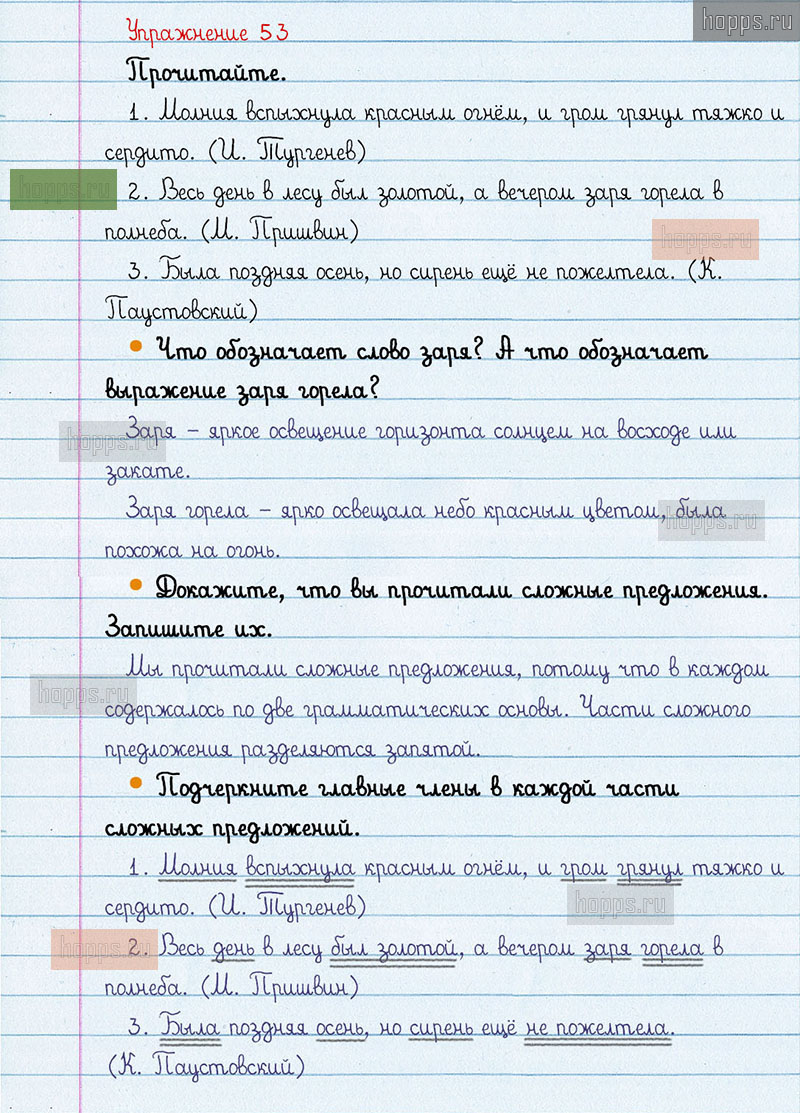 hopps.ru
Упражнение 53
Прочитайте.
1. Молния вспыхнула красным огнём, и гром грянул тяжко и
сердито. (И. Тургенев)
hopps.ru
2. Весь день в лесу был золотой, а вечером заря горела в
полнеба. (М. Пришвин)
hopps.ru
3. Была поздняя осень, но сирень ещё не пожелтела. (К.
Паустовский)
• Что обозначает слово заря? А что обозначает
выражение заря горела?
hopps.ru
Заря – яркое освещение горизонта солнцем на восходе или
закате.
Заря горела – ярко освещала небо красным цветом, была
hopps.ru
похожа на огонь.
• Докажите, что вы прочитали сложные предложения.
Запишите их.
Мы прочитали сложные предложения, потому что в каждом
hopps.ru
содержалось по две грамматических основы. Части сложного
предложения разделяются запятой.
• Подчеркните главные члены в каждой части
сложных предложений.
1. Молния вспыхнула красным огнём, и гром грянул тяжко и
сердито. (И. Тургенев)
hopps.ru
2. Весь день в лесу был золотой, а вечером заря горела в
hopps.ru
полнеба. (М. Пришвин)
3. Была поздняя осень, но сирень ещё не пожелтела.
(К. Паустовский)